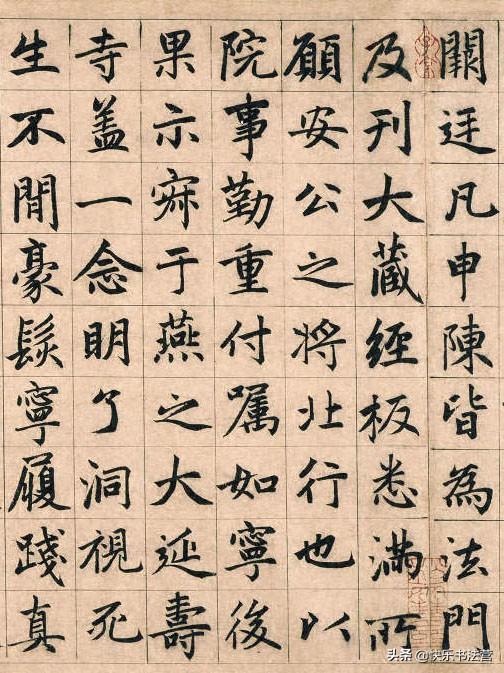 闕廷凡申陳皆為法門
及刊大藏經板悉滿所
願安公之將北行也以
院事勤重付囑如寧後
果示寂于燕之大延壽
寺盖一念明了洞視死
生不間豪髮寧履踐真
头条 @快乐书法营